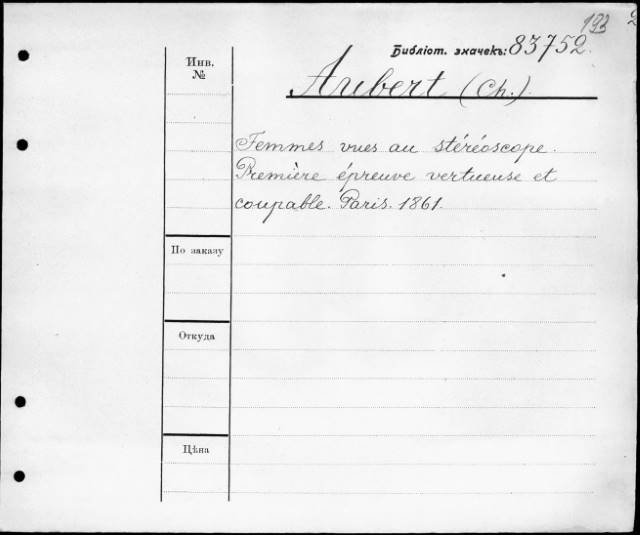 193
2
Библіот. значекъ: 83752.
Инв.
№
Aubert (Ch.).
Femmes vues au stéréoscope.
Première épreuve vertueuse et
coupable. Paris. 1861.
По заказу
Откуда
Цѣна